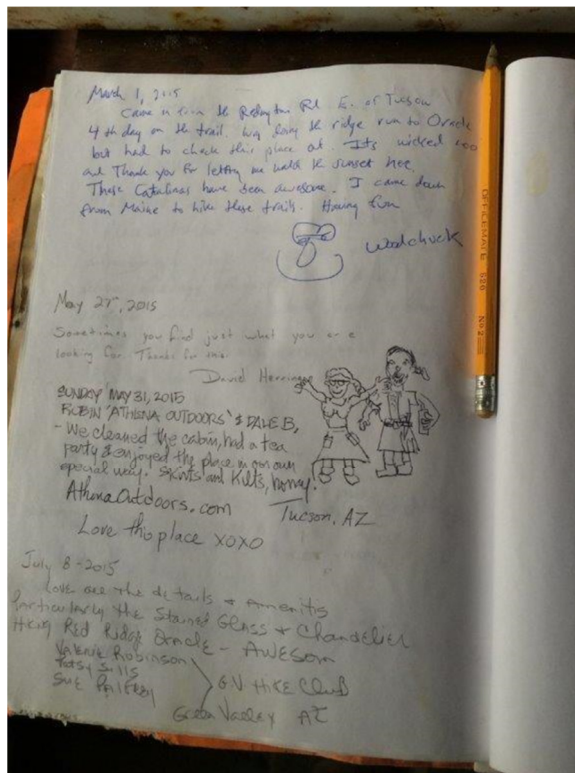 March 1, 2015
Came in from the Redington Rd E. of Tucson
4th day on the trail. Was doing the ridge run to Oracle
but had to check this place out. It's wicked coo
and Thank you for letting me watch the sunset here.
These Catalinas have been awesome. I came down
from Maine to hike these trails. Having fun
Woodchuck
May 27, 2015
Sometimes you find just what you are
looking for. Thanks for this
David
SUNDAY MAY 31, 2015
ROBIN "ATHENA OUTDOORS" & DALE B.
- We cleaned the cabin, had a tea
party & enjoyed the place in our own
special way. Skirts and Kilts, honey!
AthenaOutdoors.com
Tucson, AZ
Love this place XOXO
July 8-2015
Love all the details & Amenitis
Particularly the Stained Glass & Chandelier
Hiking Red Ridge Oracle - AWESOM
Valerie Robinson
Patsy Sills
Sue
G.V. HIKE CLUB
Green Valley AZ
OFFICEMATE 520 No2